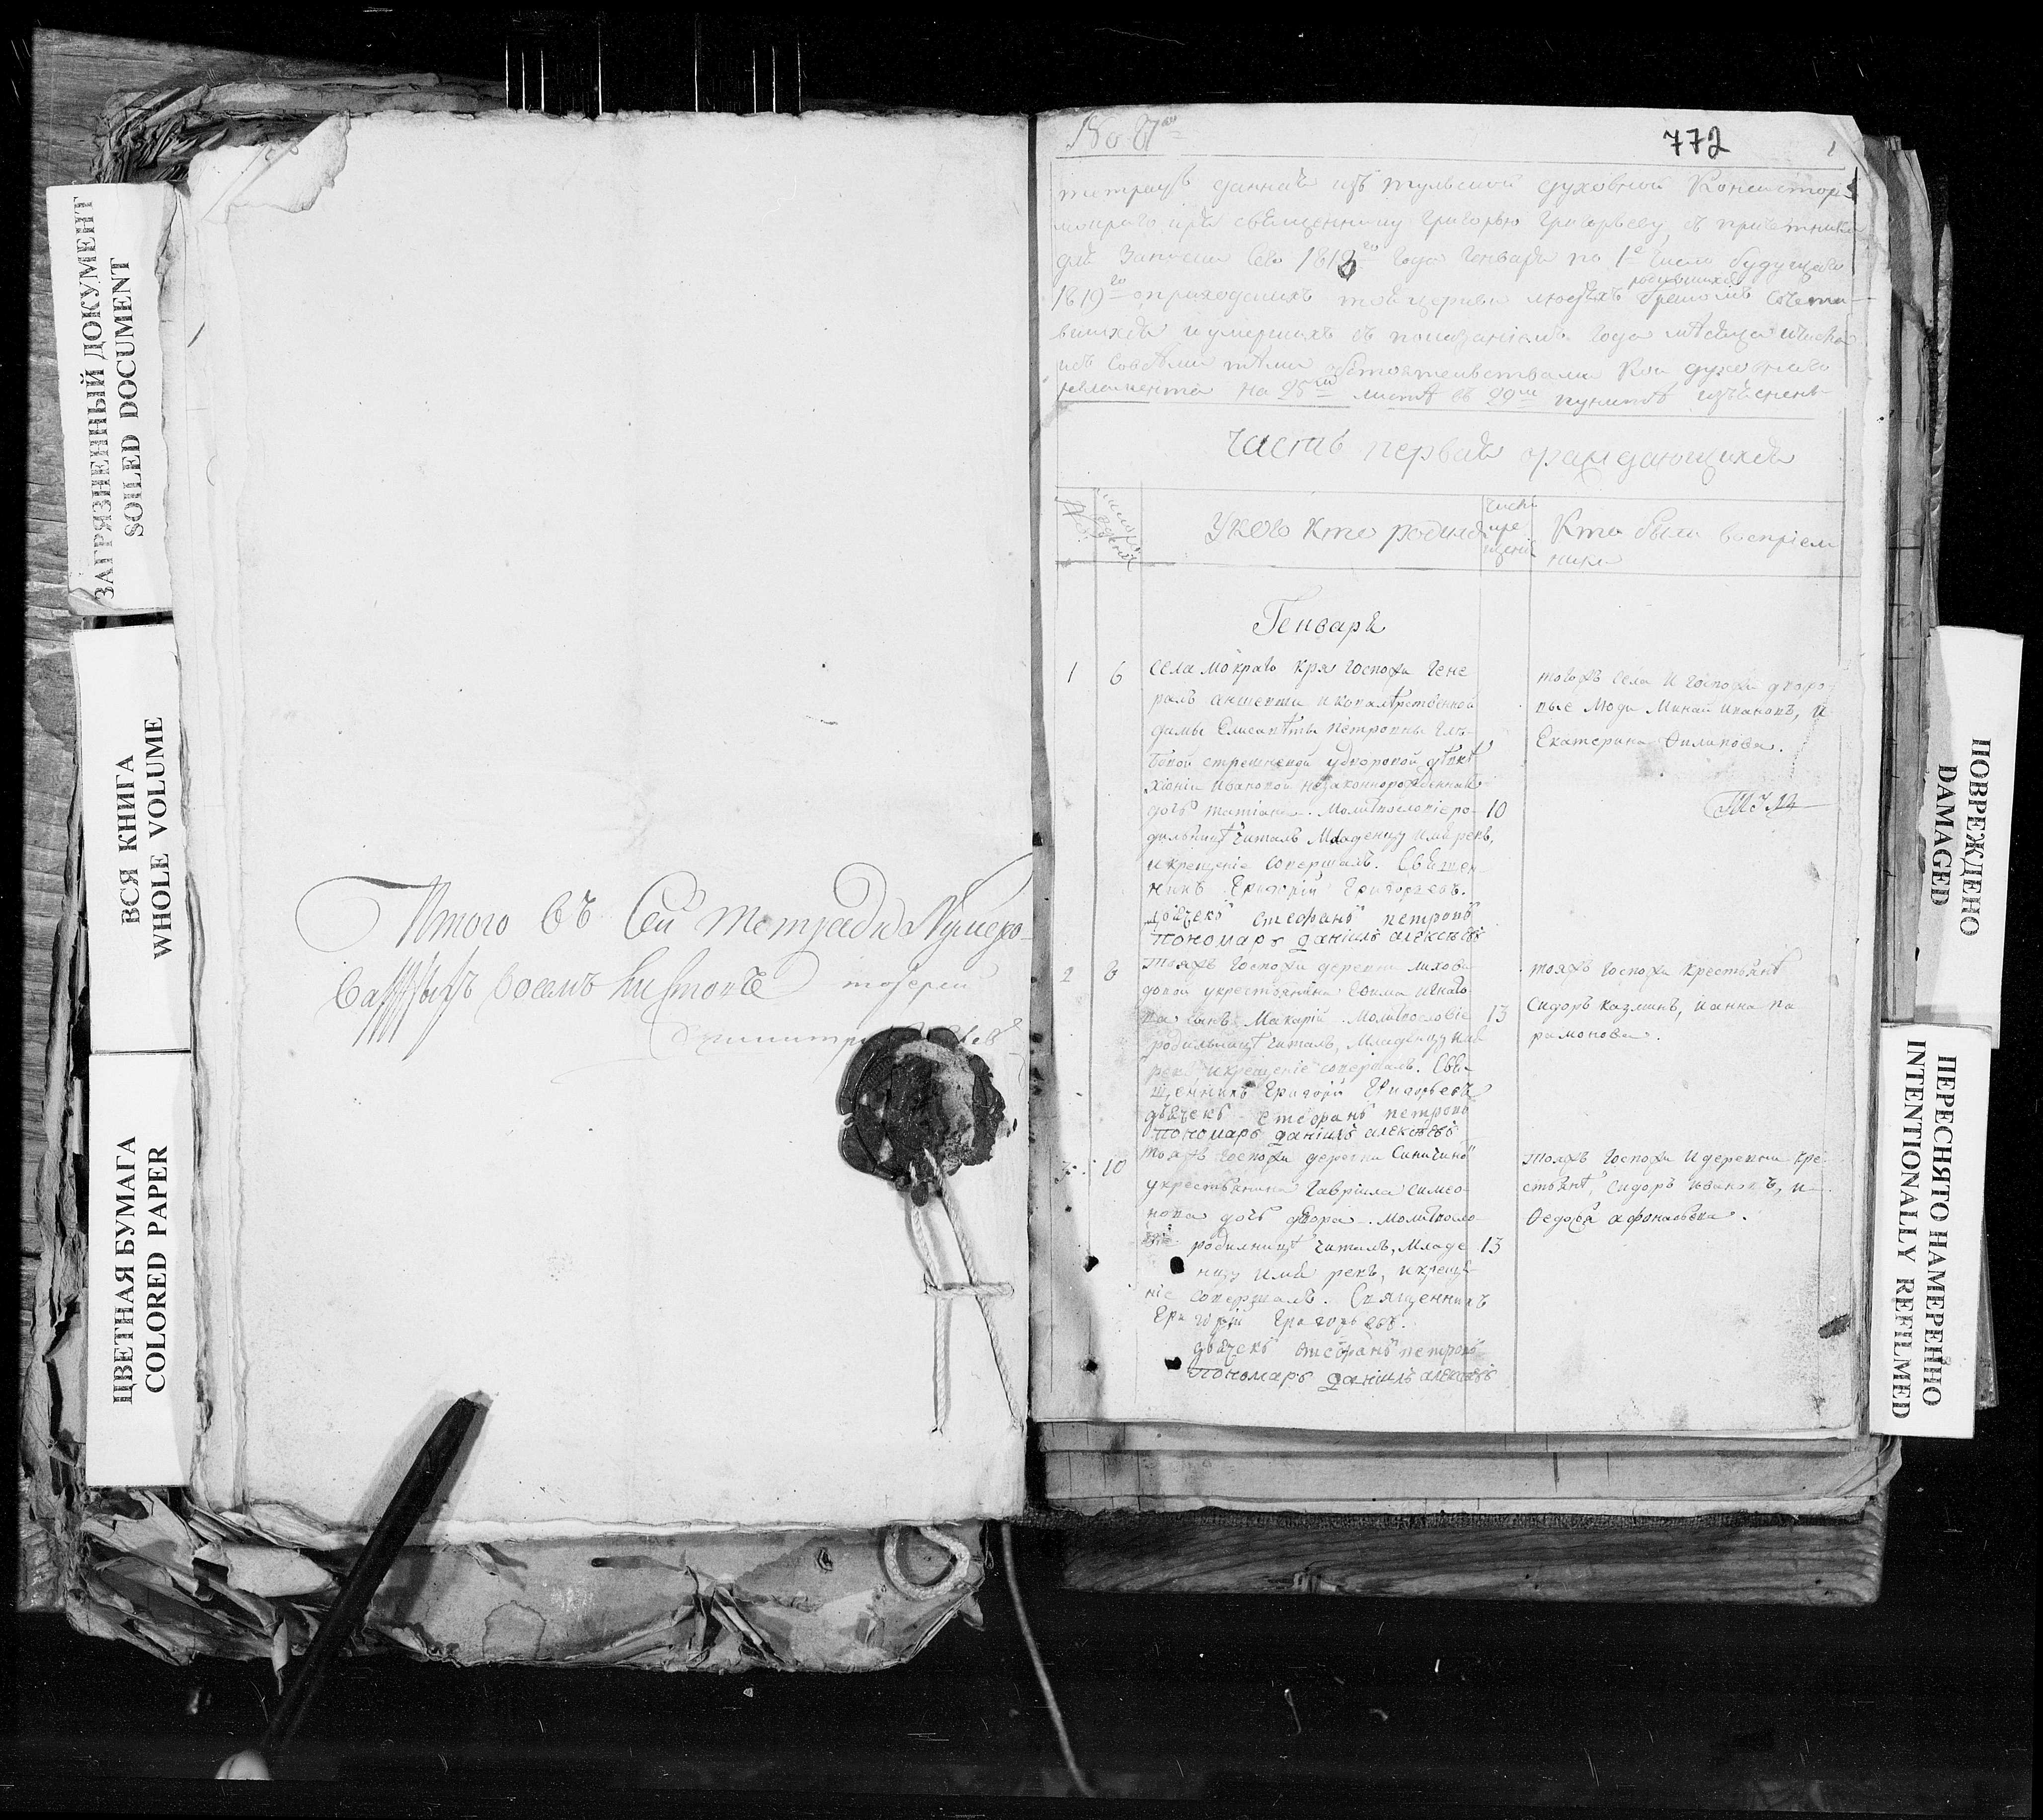 ЗАГРЯЗНЕННЫЙ ДОКУМЕНТ
SOILED DOCUMENT
ВСЯ КНИГА
WHOLE VOLUME
ЦВЕТНАЯ БУМАГА
COLORED PAPER
Итого въ Сей тетради Нумеро-
ва##ыхъ восемь листовъ
772
1
тетрадь данная изъ тульской духовной Консистор
священнику григорью григорьеву, съ причетники
для Записки Сего 1818го года Генваря по 1е Число будущаго
родившихся
1819го о приходскихъ той церкви людехъ бракомъ Сочета-
вшихся и умершихъ съ показаніемъ года мѣсяца и числа
Совсѣми тѣми обстоятельствами Кои духовнаго
регламента на 25м листѣ въ 29м пунктѣ изъяснены
Часть первая о раждающихся
У кого кто родился
Число
кре
щені
Кто были воспріем
ники
Генваря
1
6
села мокраго кря госпожи гене
ралъ аншефши и
дамы Елисаветы Петровны глѣ-
бовой стрешневой у дворовой дѣвки
Хіоніи Ивановой незаконнорожденная
дочь татіана. Молитвословіе ро-
10
дильницѣ читалъ Младенцу имя рекъ,
и крещеніе совершалъ. Священ-
никъ Григорій Григорьевъ.
дьячекъ стефанъ петровъ
пономарь даніилъ алексѣевъ
тогожъ села и госпожи дворо-
вые люди Минай ивановъ, и
Екатерина Филипова.
2
8
тояжъ госпожи деревни
довой у крестьянина
сынъ Макарій. Молитвословіе
13
родильницѣ читалъ, Младенцу имя
рекъ и крещеніе совершалъ. Свя-
щенникъ Григорій Григорьевъ
дьячекъ стефанъ петровъ
пономарь даніилъ алексѣевъ
тояжъ госпожи крестьянѣ
Сидоръ казминъ, и анна па
рамонова.
3
10
тояжъ госпожи деревни Синичиной
у крестьянина Гавріила симео-
нова дочь. Молитвосло-
віе родилницѣ читалъ, младе
13
нцу имя рекъ, и креще
ніе совершалъ. Священникъ
Григорій Григорьевъ.
дьячекъ стефанъ петровъ
пономарь даніилъ алексѣевъ
тояжъ госпожи и деревни кре-
стьянѣ, сидоръ ивановъ, и
Федосья афонасьева.
ПОВРЕЖДЕНО
DAMAGED
ПЕРЕСНЯТО НАМЕРЕННО
INTENTIONALLY REFILMED